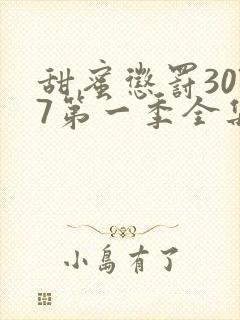 甜蜜惩罚30
7第一季全集
小岛有了